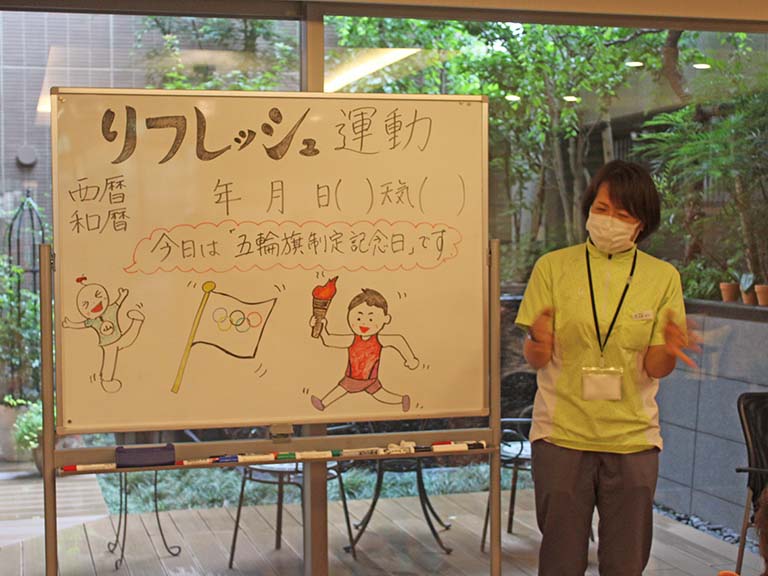 リフレッシュ運動
西暦
和暦
年 月 日( )天気( )
今日は「五輪旗制定記念日」です